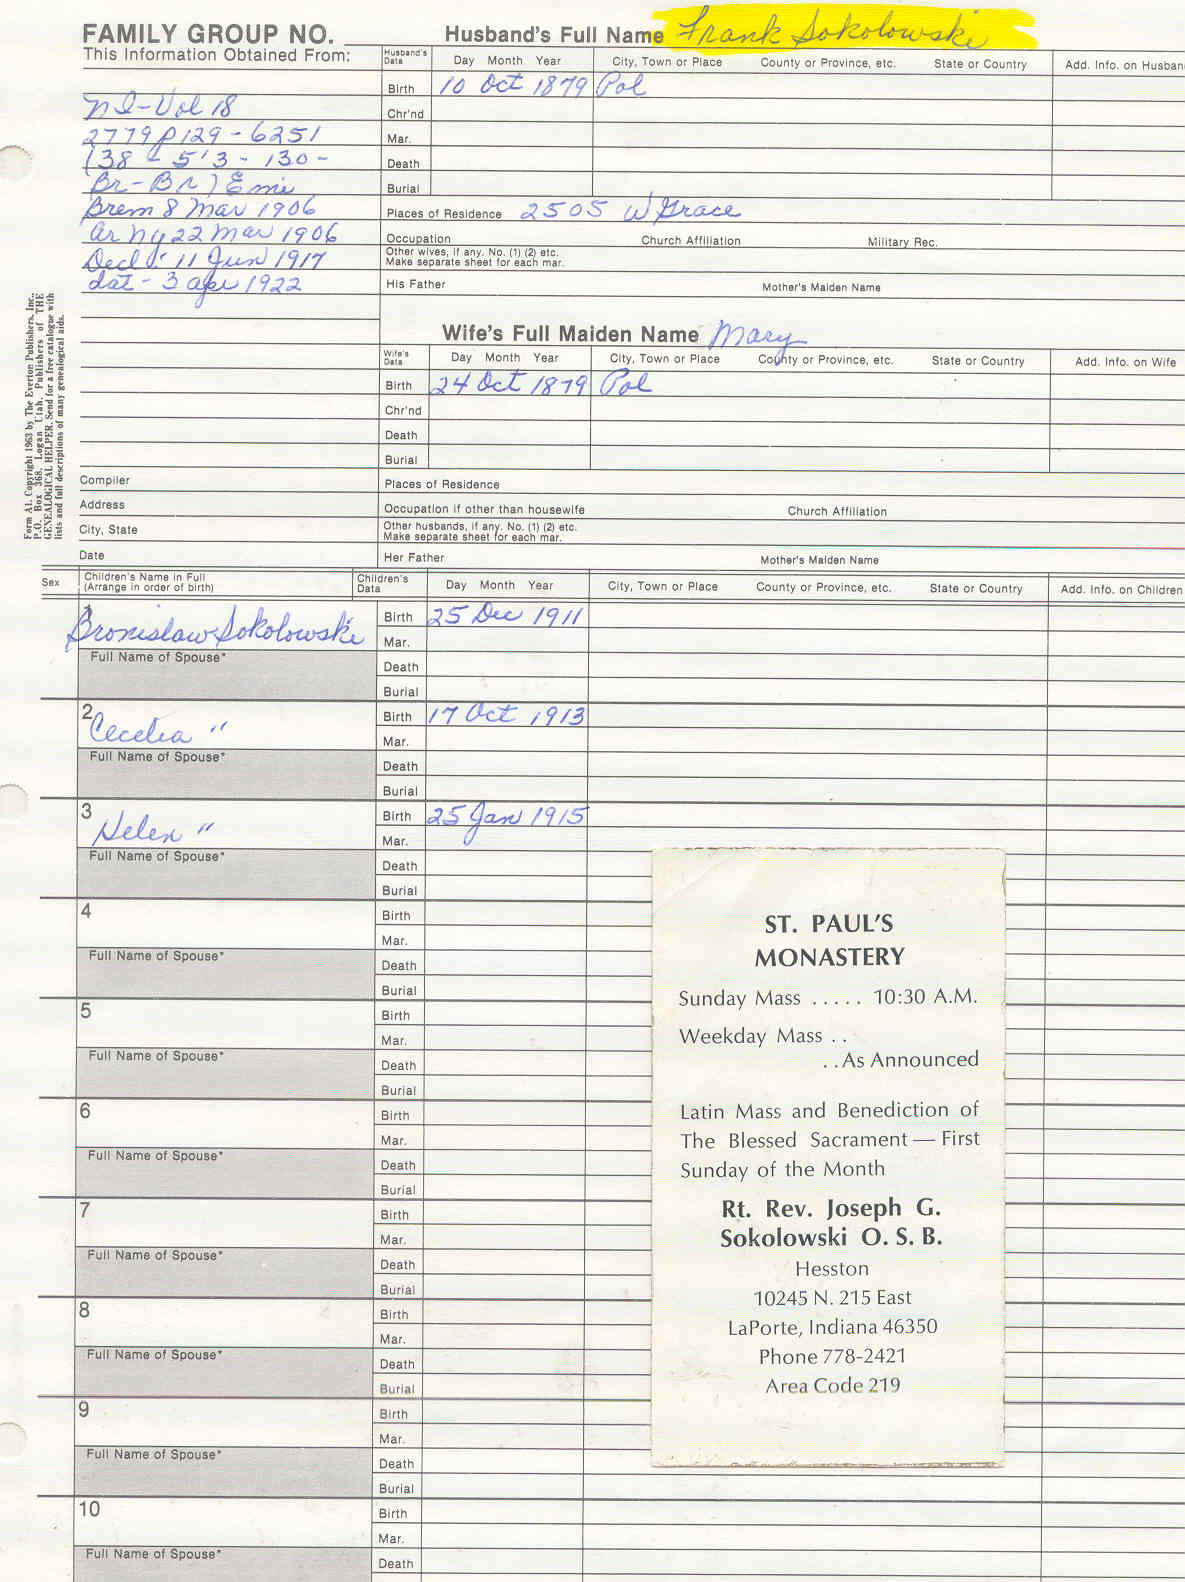 FAMILY GROUP NO. Husband's Full Name Frank Sokolowski
This Information Obtained From: Husband's Data Day Month Year City, Town or Place County or Province, etc. State or Country Add. Info. on Husban
Birth 10 Oct 1879 Pol
NI-Vol 18 Chr'nd
2779 p 129 - 6251 Mar.
(38 - 5'3 - 130 - Death
Br - Br) Emi Burial
Brem 8 Mar 1906 Places of Residence 2505 W Grace
Ar Ny 22 Mar 1906 Occupation Church Affiliation Military Rec.
Decl: 11 Jun 1917 Other wives, if any. No. (1) (2) etc.
Make separate sheet for each mar.
dat - 3 apr 1922 His Father Mother's Maiden Name
Wife's Full Maiden Name Mary
Wife's Data Day Month Year City, Town or Place County or Province, etc. State or Country Add. Info. on Wife
Birth 24 Oct 1879 Pol
Chr'nd
Death
Burial
Compiler Places of Residence
Address Occupation if other than housewife Church Affiliation
City, State Other husbands, if any. No. (1) (2) etc.
Make separate sheet for each mar.
Date Her Father Mother's Maiden Name
Form A1. Copyright 1963 by The Everton Publishers, Inc.,
P.O. Box 368, Logan Utah, Publishers of THE
GENEALOGICAL HELPER. Send for a free catalogue with
lists and full descriptions of many genealogical aids.
Sex Children's Name in Full
(Arrange in order of birth) Children's Data Day Month Year City, Town or Place County or Province, etc. State or Country Add. Info. on Children
1 Bronislaw Sokolowski Birth 25 Dec 1911
Mar.
Full Name of Spouse* Death
Burial
2 Cecelia " Birth 17 Oct 1913
Mar.
Full Name of Spouse* Death
Burial
3 Helen " Birth 25 Jan 1915
Mar.
Full Name of Spouse* Death
Burial
4 Birth
Mar.
Full Name of Spouse* Death
Burial
5 Birth
Mar.
Full Name of Spouse* Death
Burial
6 Birth
Mar.
Full Name of Spouse* Death
Burial
7 Birth
Mar.
Full Name of Spouse* Death
Burial
8 Birth
Mar.
Full Name of Spouse* Death
Burial
9 Birth
Mar.
Full Name of Spouse* Death
Burial
10 Birth
Mar.
Full Name of Spouse* Death
ST. PAUL'S
MONASTERY
Sunday Mass ..... 10:30 A.M.
Weekday Mass ..
..As Announced
Latin Mass and Benediction of
The Blessed Sacrament — First
Sunday of the Month
Rt. Rev. Joseph G.
Sokolowski O. S. B.
Hesston
10245 N. 215 East
LaPorte, Indiana 46350
Phone 778-2421
Area Code 219